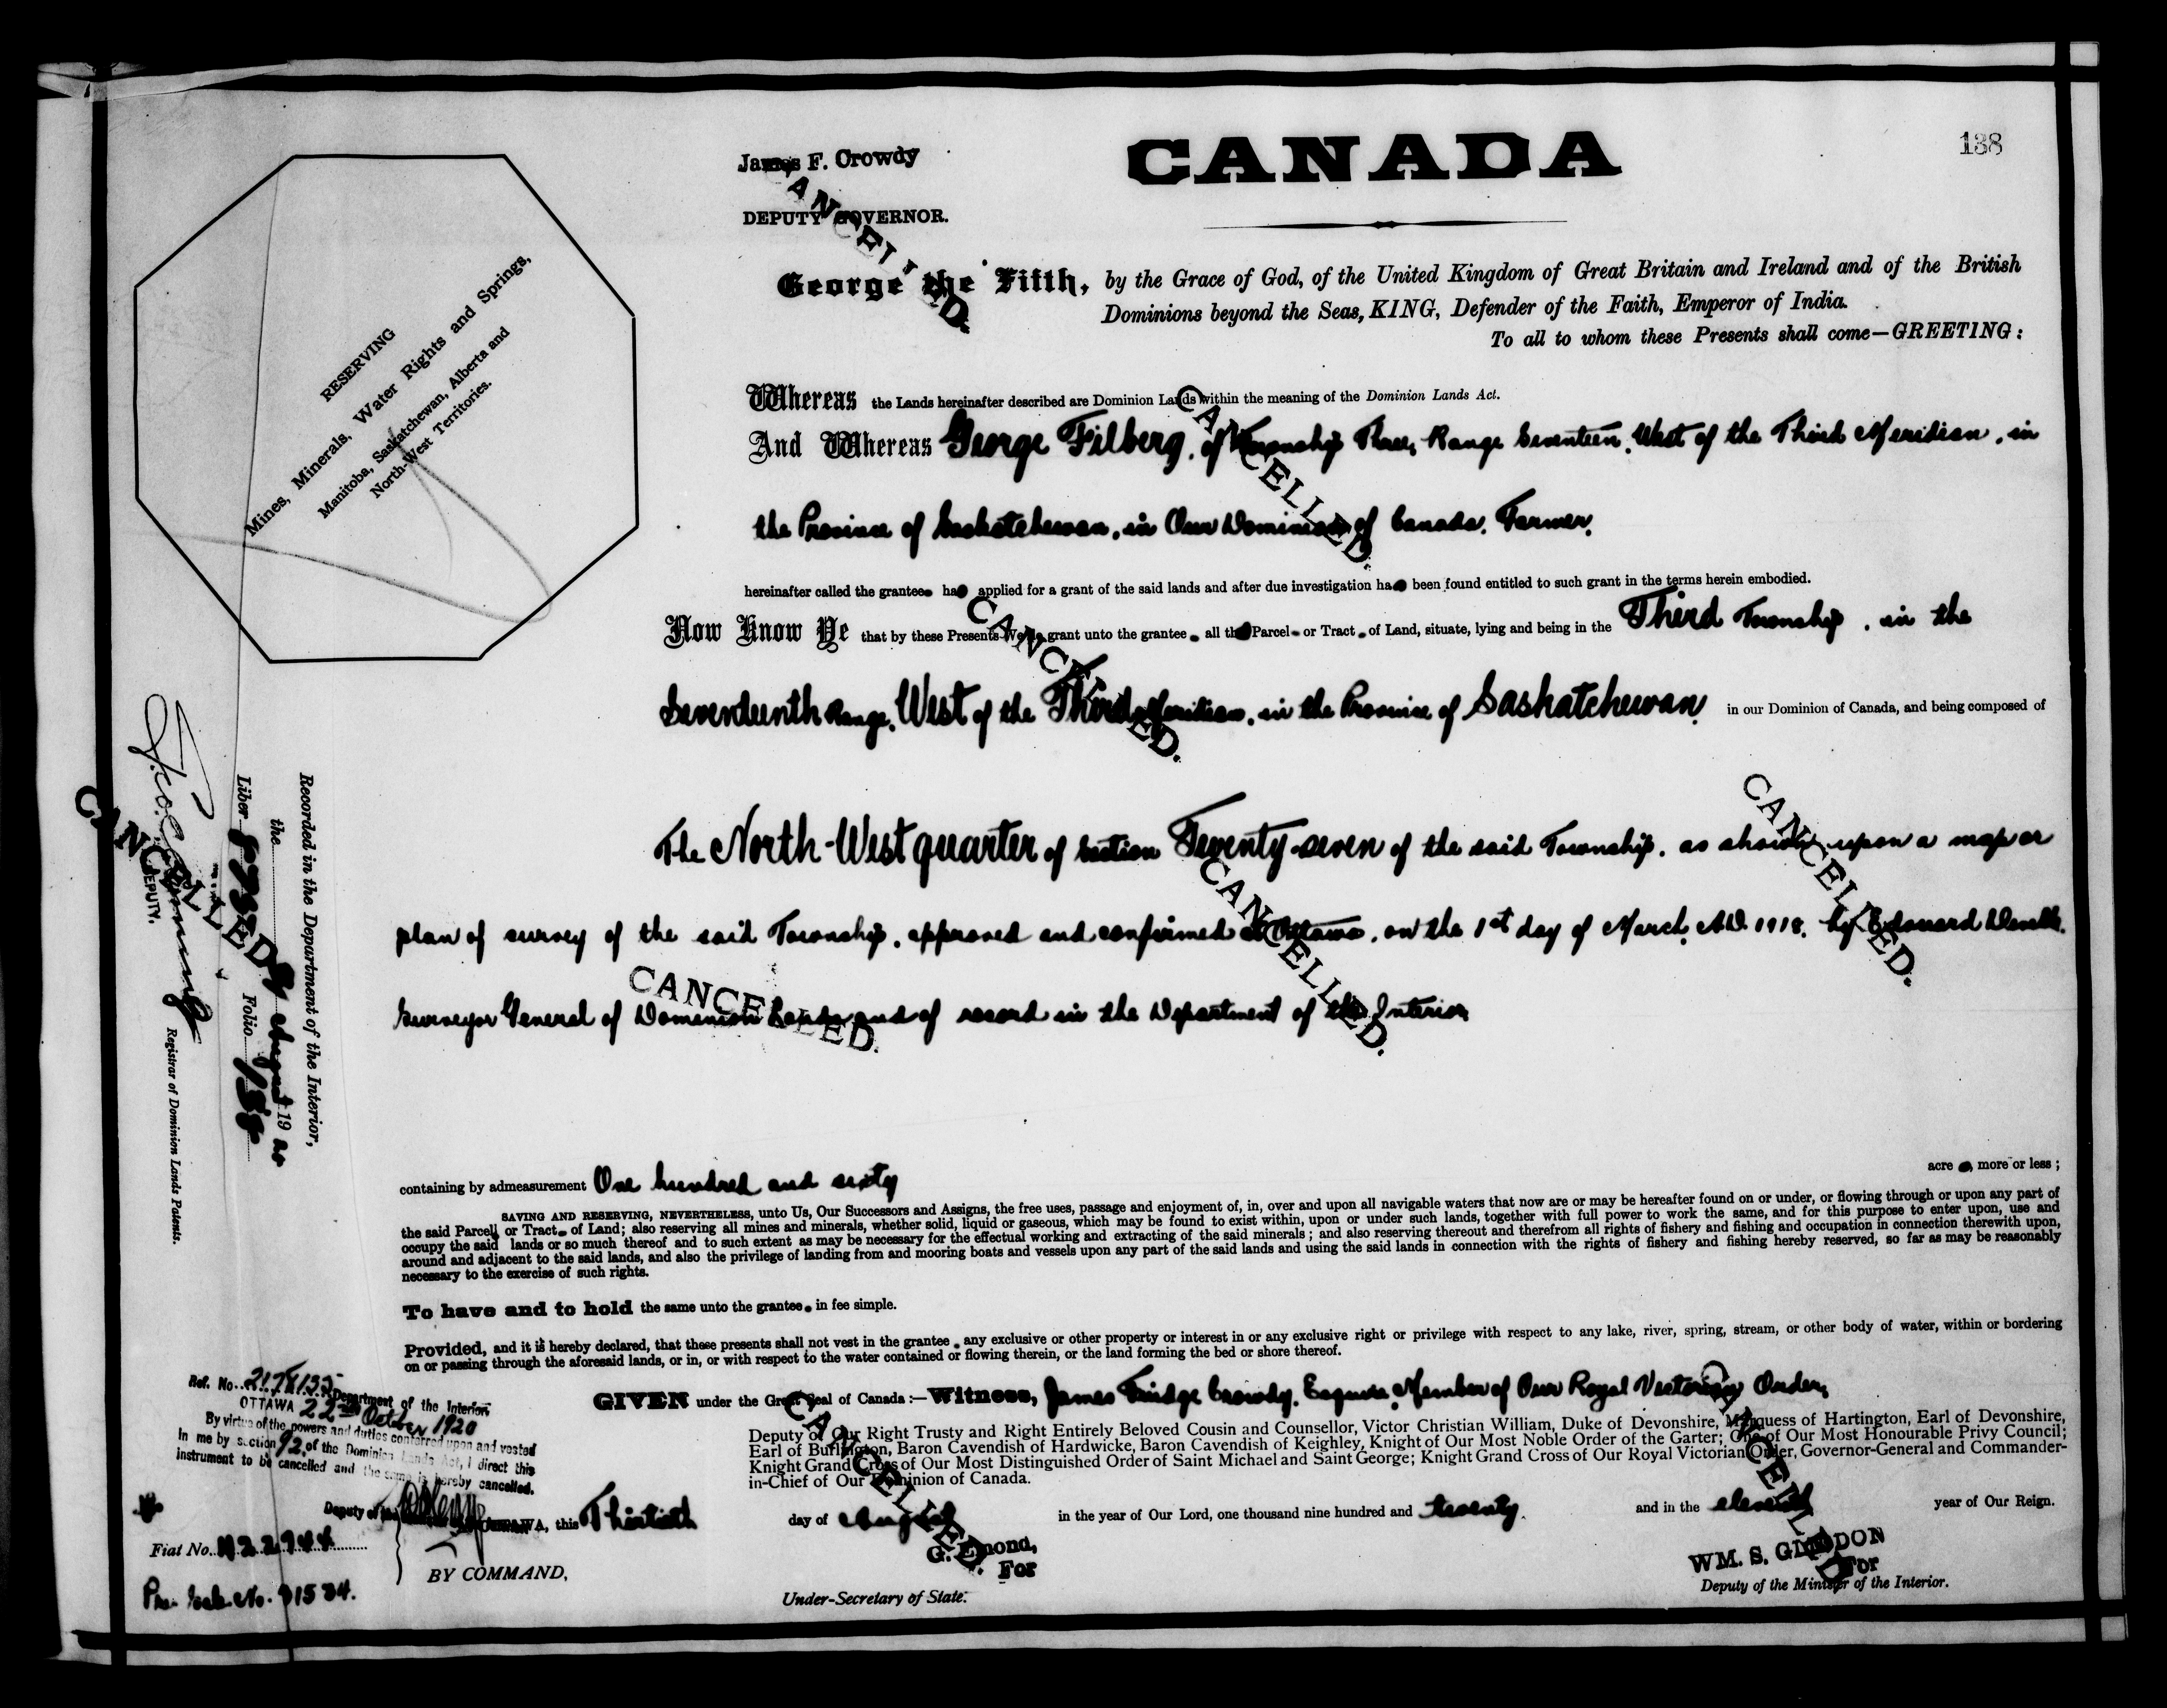 138
James F. Crowdy
CANADA
DEPUTY GOVERNOR.
CANCELLED.
George the Fifth, by the Grace of God, of the United Kingdom of Great Britain and Ireland and of the British
Dominions beyond the Seas, KING, Defender of the Faith, Emperor of India.
To all to whom these Presents shall come—GREETING:
RESERVING
Mines, Minerals, Water Rights and Springs,
Manitoba, Saskatchewan, Alberta and
North-West Territories.
Whereas the Lands hereinafter described are Dominion Lands within the meaning of the Dominion Lands Act.
CANCELLED.
And Whereas George Filberg, of Township Three, Range Seventeen, West of the Third Meridian, in
the Province of Saskatchewan, in Our Dominion of Canada, Farmer,
hereinafter called the grantee has applied for a grant of the said lands and after due investigation has been found entitled to such grant in the terms herein embodied.
CANCELLED.
Now Know Ye that by these Presents We do grant unto the grantee all that Parcel or Tract of Land, situate, lying and being in the Third Township, in the
Seventeenth Range, West of the Third Meridian, in the Province of Saskatchewan, in our Dominion of Canada, and being composed of
CANCELLED.
The North-West quarter of Section Twenty-seven of the said Township, as shown upon a map or
CANCELLED.
plan of survey of the said Township, approved and confirmed at Ottawa, on the 1st day of March, A.D. 1918, by Edouard Deville,
CANCELLED.
Surveyor General of Dominion Lands and of record in the Department of the Interior,
Recorded in the Department of the Interior,
the August 19 20
Liber Folio 138
CANCELLED
DEPUTY.
Registrar of Dominion Lands Patents.
containing by admeasurement One hundred and sixty acre , more or less;
SAVING AND RESERVING, NEVERTHELESS, unto Us, Our Successors and Assigns, the free uses, passage and enjoyment of, in, over and upon all navigable waters that now are or may be hereafter found on or under, or flowing through or upon any part of
the said Parcel or Tract of Land; also reserving all mines and minerals, whether solid, liquid or gaseous, which may be found to exist within, upon or under such lands, together with full power to work the same, and for this purpose to enter upon, use and
occupy the said lands or so much thereof and to such extent as may be necessary for the effectual working and extracting of the said minerals; and also reserving thereout and therefrom all rights of fishery and fishing and occupation in connection therewith upon,
around and adjacent to the said lands, and also the privilege of landing from and mooring boats and vessels upon any part of the said lands and using the said lands in connection with the rights of fishery and fishing hereby reserved, so far as may be reasonably
necessary to the exercise of such rights.
To have and to hold the same unto the grantee in fee simple.
Provided, and it is hereby declared, that these presents shall not vest in the grantee any exclusive or other property or interest in or any exclusive right or privilege with respect to any lake, river, spring, stream, or other body of water, within or bordering
on or passing through the aforesaid lands, or in, or with respect to the water contained or flowing therein, or the land forming the bed or shore thereof.
GIVEN under the Great Seal of Canada:—Witness, James Fridge Crowdy, Esquire, Member of Our Royal Victorian Order,
CANCELLED.
CANCELLED
Deputy of Our Right Trusty and Right Entirely Beloved Cousin and Counsellor, Victor Christian William, Duke of Devonshire, Marquess of Hartington, Earl of Devonshire,
Earl of Burlington, Baron Cavendish of Hardwicke, Baron Cavendish of Keighley, Knight of Our Most Noble Order of the Garter; One of Our Most Honourable Privy Council;
Knight Grand Cross of Our Most Distinguished Order of Saint Michael and Saint George; Knight Grand Cross of Our Royal Victorian Order, Governor-General and Commander-
in-Chief of Our Dominion of Canada.
Ref. No. 2178135 Department of the Interior,
OTTAWA 22nd October 1920
By virtue of the powers and duties conferred upon and vested
In me by section 92 of the Dominion Lands Act, I direct this
instrument to be cancelled and the same is hereby cancelled.
Deputy of the
OTTAWA, this Thirtieth day of August in the year of Our Lord, one thousand nine hundred and twenty. and in the eleventh year of Our Reign.
Fiat No. 422944
BY COMMAND,
G. Emond,
For
Under-Secretary of State.
WM. S. GLIDDON
For
Deputy of the Minister of the Interior.
Pre. Sale No. 91584.